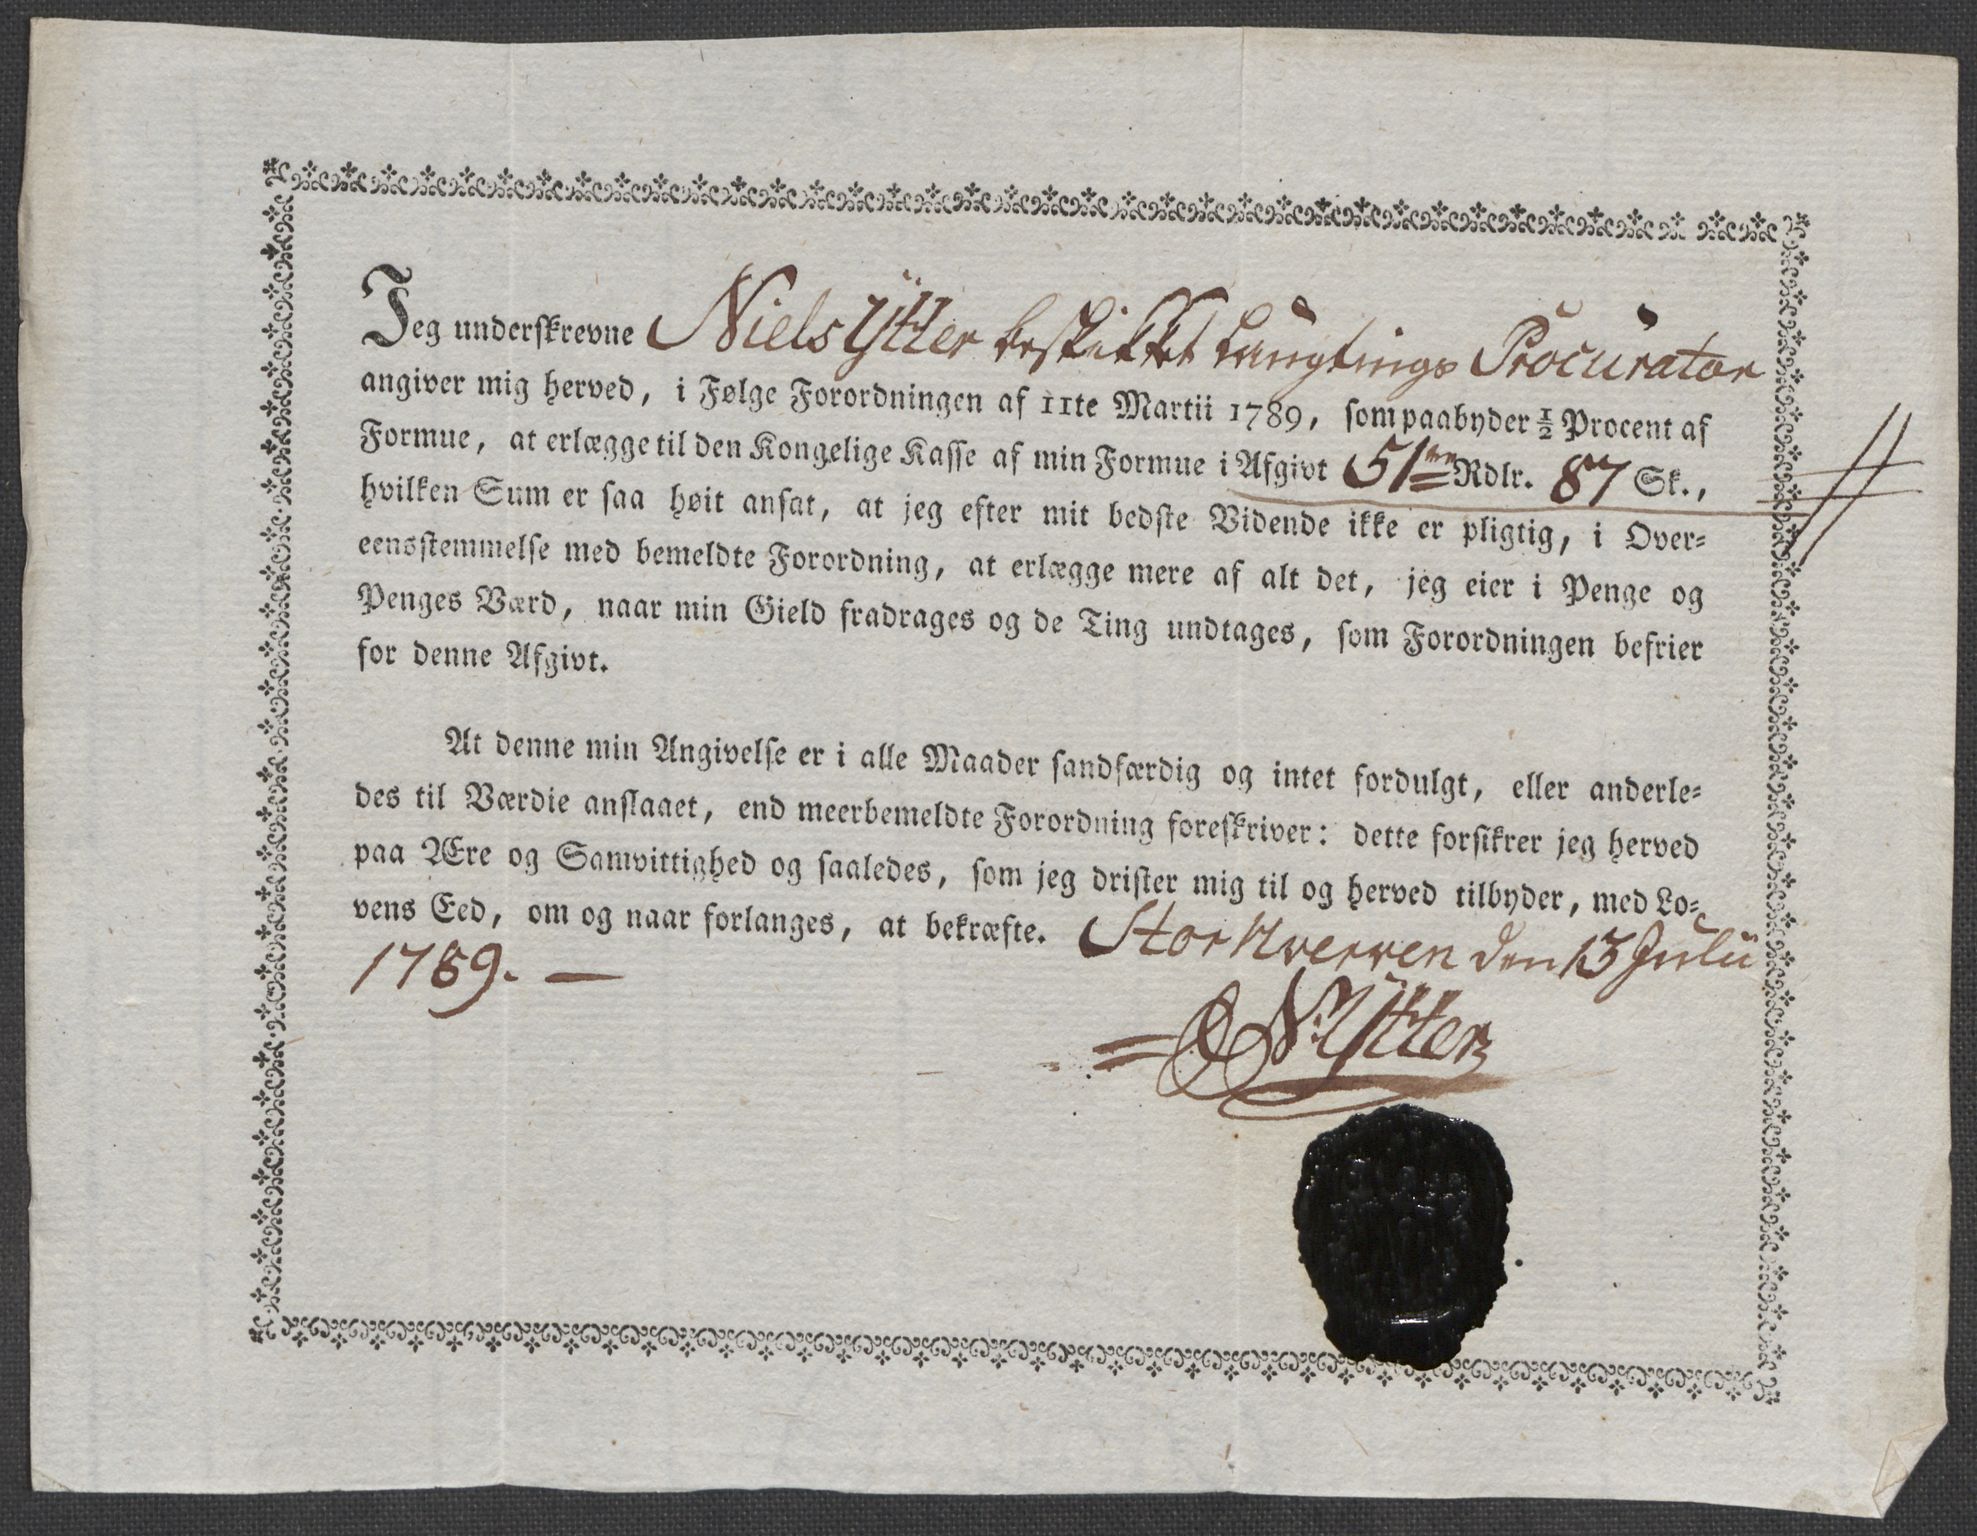 Jeg underskrevne Niels Ytter beskikket Laugtings Procurator
angiver mig herved, i Følge Forordningen af 11te Martii 1789, som paabyder ½ Procent af
Formue, at erlægge til den Kongelige Kasse af min Formue i Afgivt 51 Rdlr. 87 Sk.,
hvilken Sum er saa høit ansat, at jeg efter mit bedste Vidende ikke er pligtig, i Over=
eensstemmelse med bemeldte Forordning, at erlægge mere af alt det, jeg eier i Penge og
Penges Værd, naar min Gield fradrages og de Ting undtages, som Forordningen befrier
for denne Afgivt.
At denne min Angivelse er i alle Maader sandfærdig og intet fordulgt, eller anderle=
des til Værdie anslaaet, end meerbemeldte Forordning foreskriver: dette forsikrer jeg herved
paa Ære og Samvittighed og saaledes, som jeg drister mig til og herved tilbyder, med Lo=
vens Eed, om og naar forlanges, at bekræfte. Stor Hverven den 13 Julii
1789. —
N: Ytter